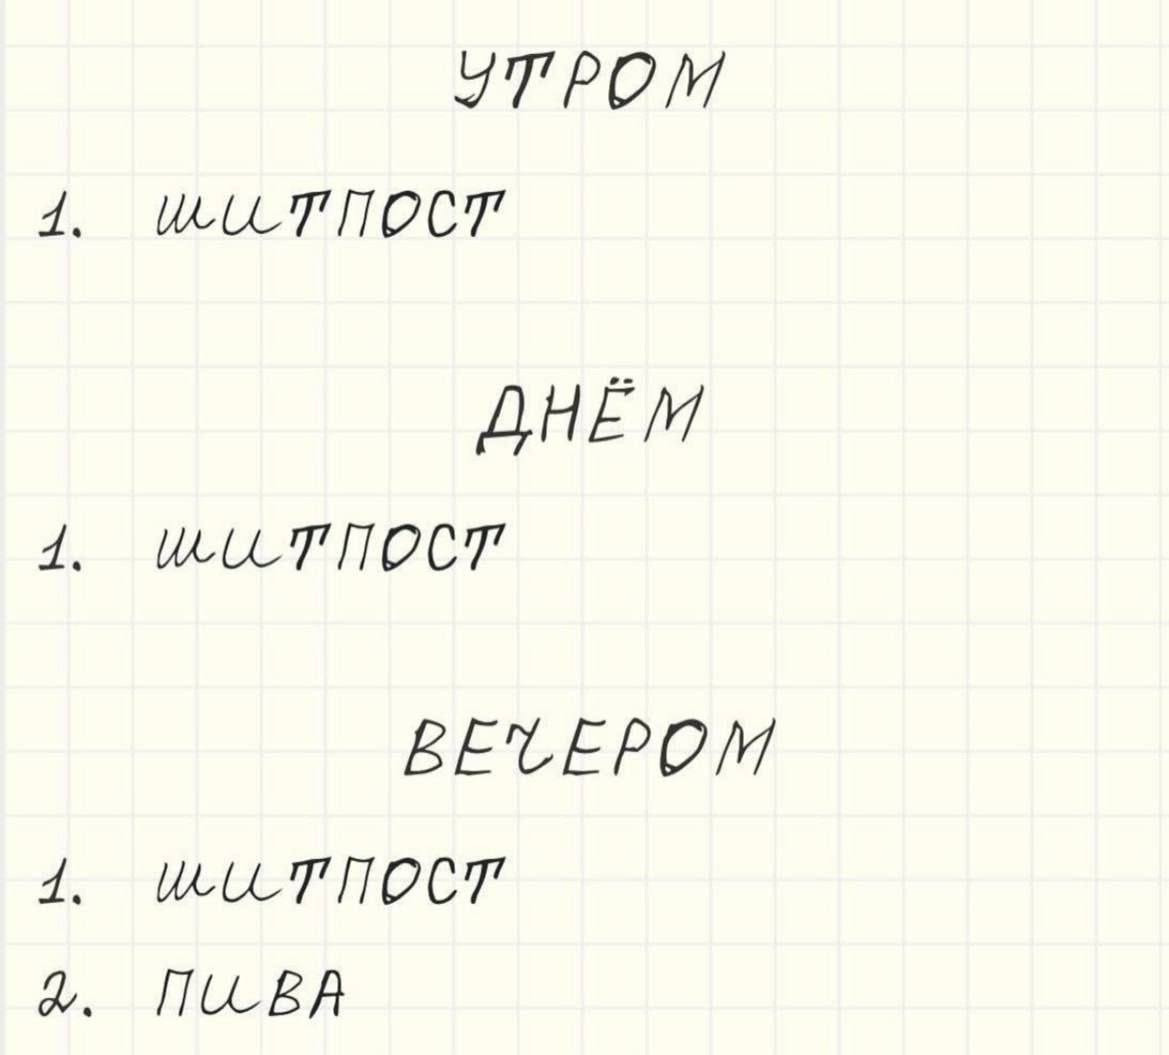 УТРОМ
1. ШИТПОСТ
ДНЁМ
1. ШИТПОСТ
ВЕЧЕРОМ
1. ШИТПОСТ
2. ПИВА